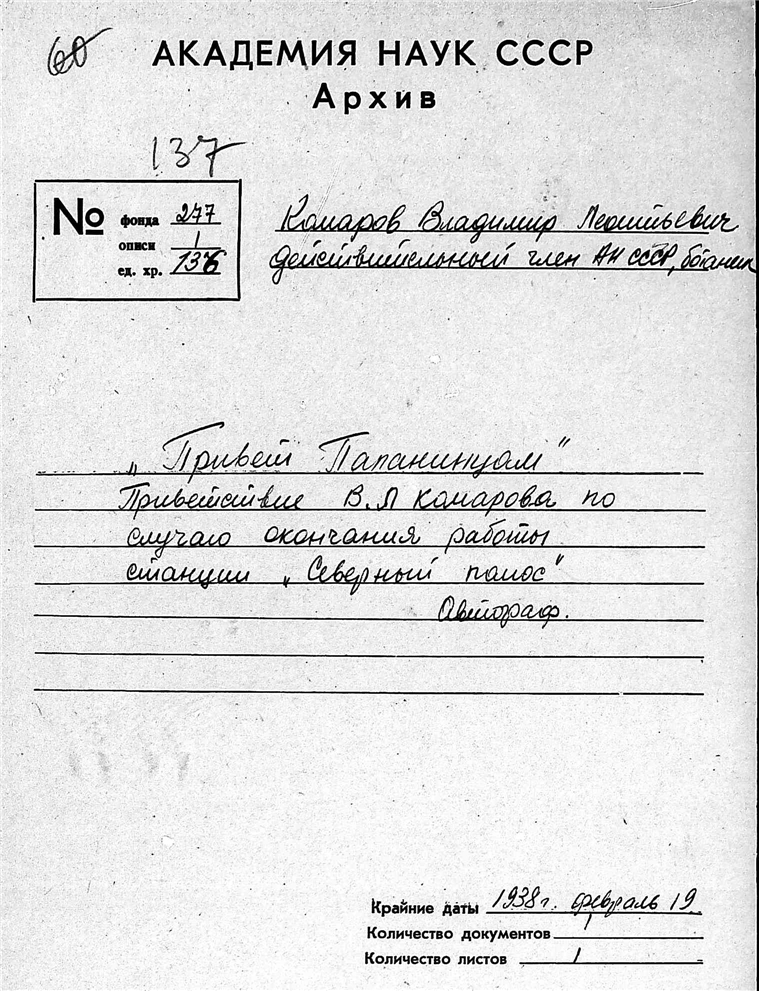 60
АКАДЕМИЯ НАУК СССР
Архив
137
№ фонда 277
описи 1
ед. хр. 136
Комаров Владимир Леонтьевич
действительный член АН СССР, ботаник
„Привет Папанинцам"
Приветствие В.Л Комарова по
случаю окончания работы
станции „Северный полюс"
Автограф.
Крайние даты 1938 г. февраль 19
Количество документов
Количество листов 1